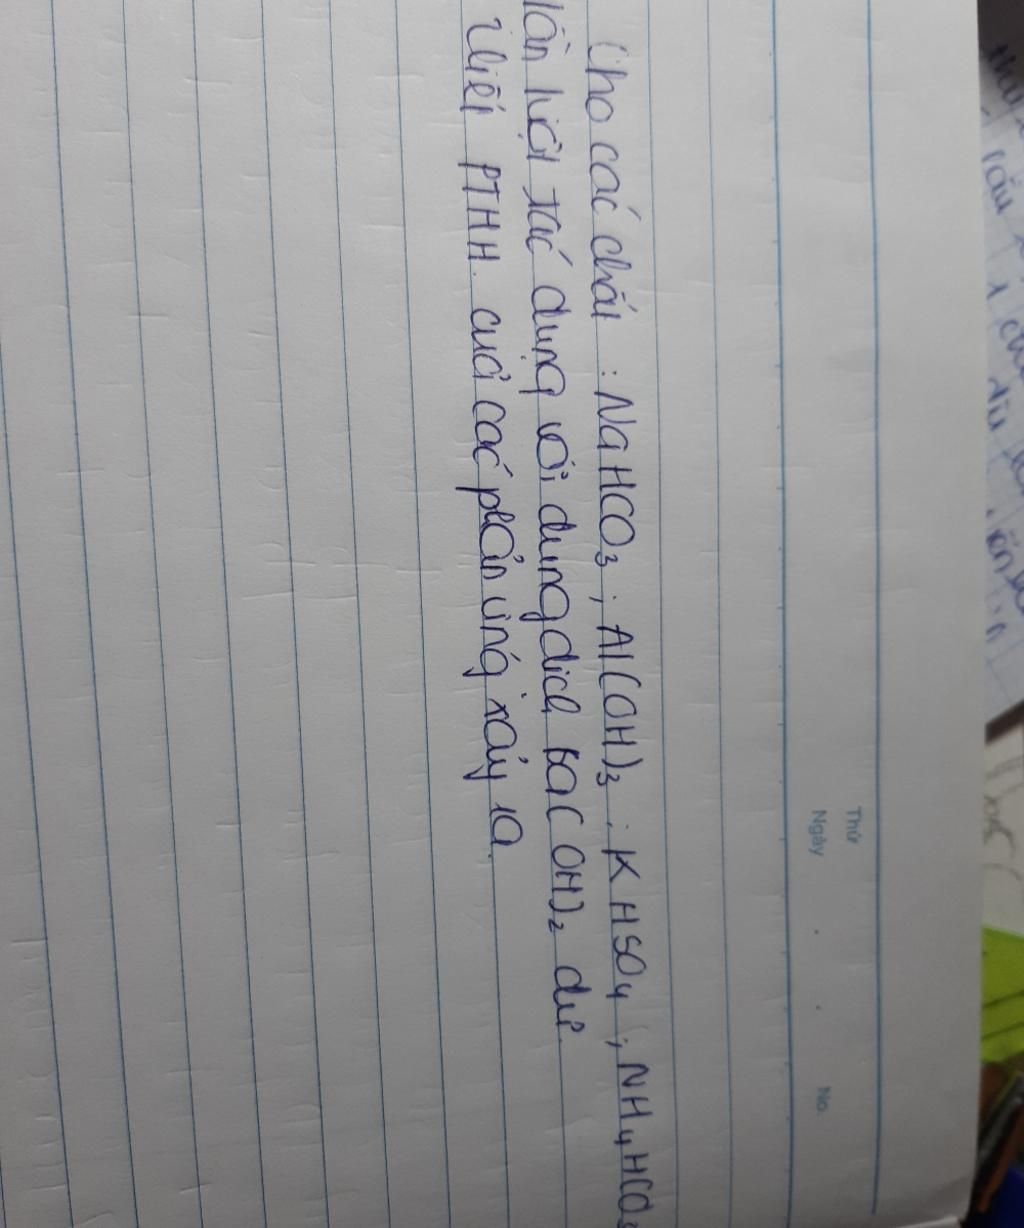 Thứ
Ngày . . No.
Cho các chất : NaHCO₃ ; Al(OH)₃ ; KHSO₄ ; NH₄HCO₃
lần lượt tác dụng với dung dịch Ba(OH)₂ dư.
Viết PTHH. của các phản ứng xảy ra.